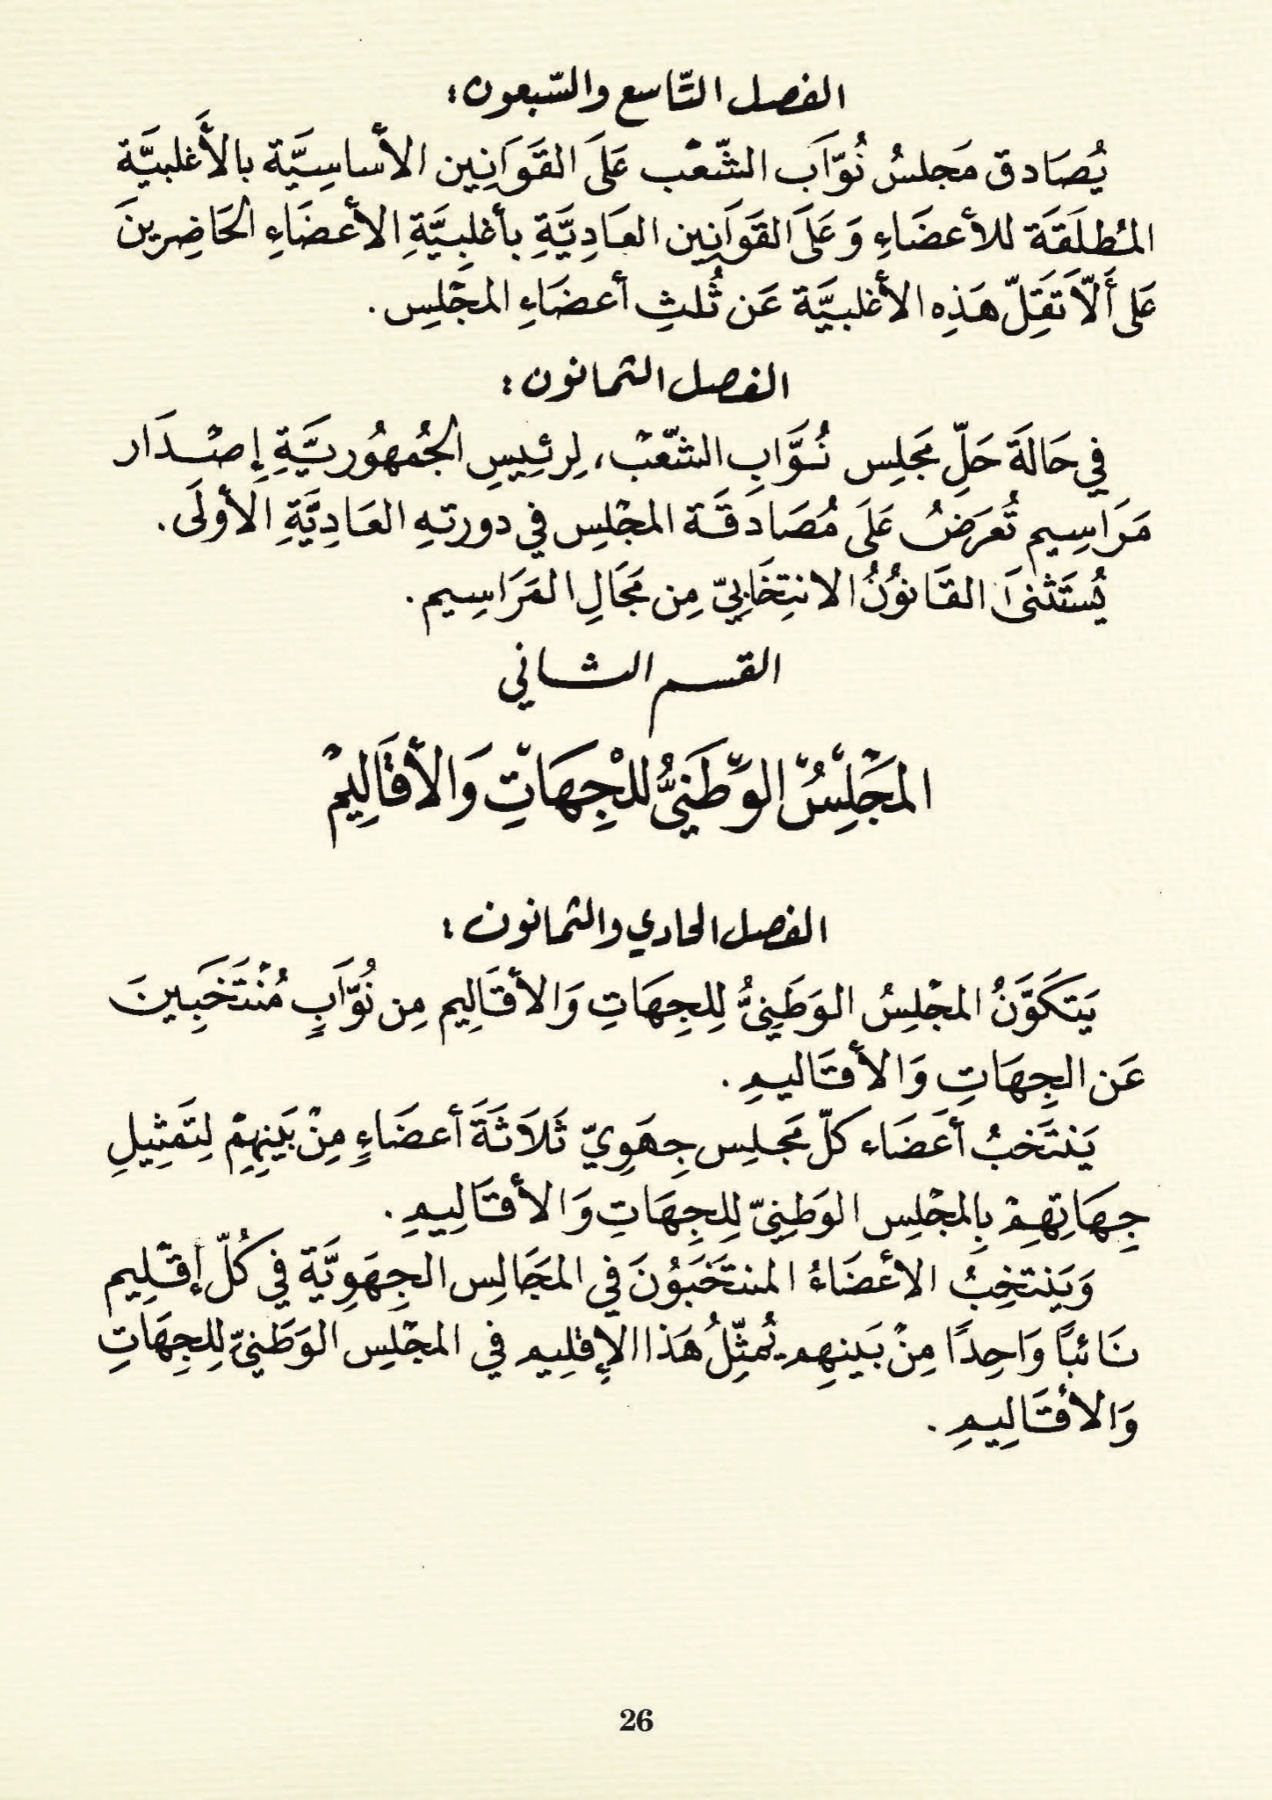 الفصل التّاسع والسّبعون:
يُصَادق مَجلسُ نُوّاَب الشّعْب عَلَى القَوَانِين الأساسِيَّة بالأَغلبيَّة
المُطلَقَة للأعضَاءِ وَعَلَى القَوَانِين العَادِيَّةِ بأغلِبِيَّةِ الأعضَاءِ الحَاضِرينَ
عَلى أَلّاَ تَقِلّ هَذِه الأغلبيَّة عَن ثُلثِ أعضَاءِ المجْلِس.
الفصل الثمانون:
في حَالَةَ حَلِّ مَجَلِس نُوَّابِ الشّعْب، لِرئِيسِ الجُمهُوريَّةِ إصْدَار
مَرَاسِيم تُعرَضُ عَلَى مُصَادقَة المجْلِس في دورتهِ العَادِيَّةِ الأولَى.
يُستَثنَى القَانوُنُ الانتِخَابِيّ مِن مَجَالِ المَرَاسِيم.
القسم الثاني
المَجْلِسُ الوَطَنيُّ للْجِهَاتِ وَالأقَالِيمْ
الفصل الحادي والثمانون:
يَتَكَوَّنُ المجْلِسُ الوَطَنِيُّ لِلجِهَاتِ وَالأقَالِيم مِن نُوَّابٍ مُنْتَخَبِينَ
عَن الجِهَاتِ وَالأقَاليمِ.
يَنتَخبُ أعَضَاء كلّ مَجلِس جِهَوِيّ ثَلاَثَةَ أعضَاءٍ مِنْ بَينِهِمْ لِتَمثِيلِ
جِهَاتِهِمْ بِالمجْلِس الوَطنِيّ لِلجِهَاتِ وَالأقَالِيمِ.
وَيَنتخِبُ الأعْضَاءُ المنتَخَبَوُنَ في المجَالِس الجِهَوِيَّة في كُلّ إقْلِيم
نَائباً وَاحِدًا مِنْ بَينهِم يُمثّلُ هَذا الإقلِيم في المجْلِس الوَطَنيّ لِلجِهَاتِ
وَالأقَالِيمِ.
26